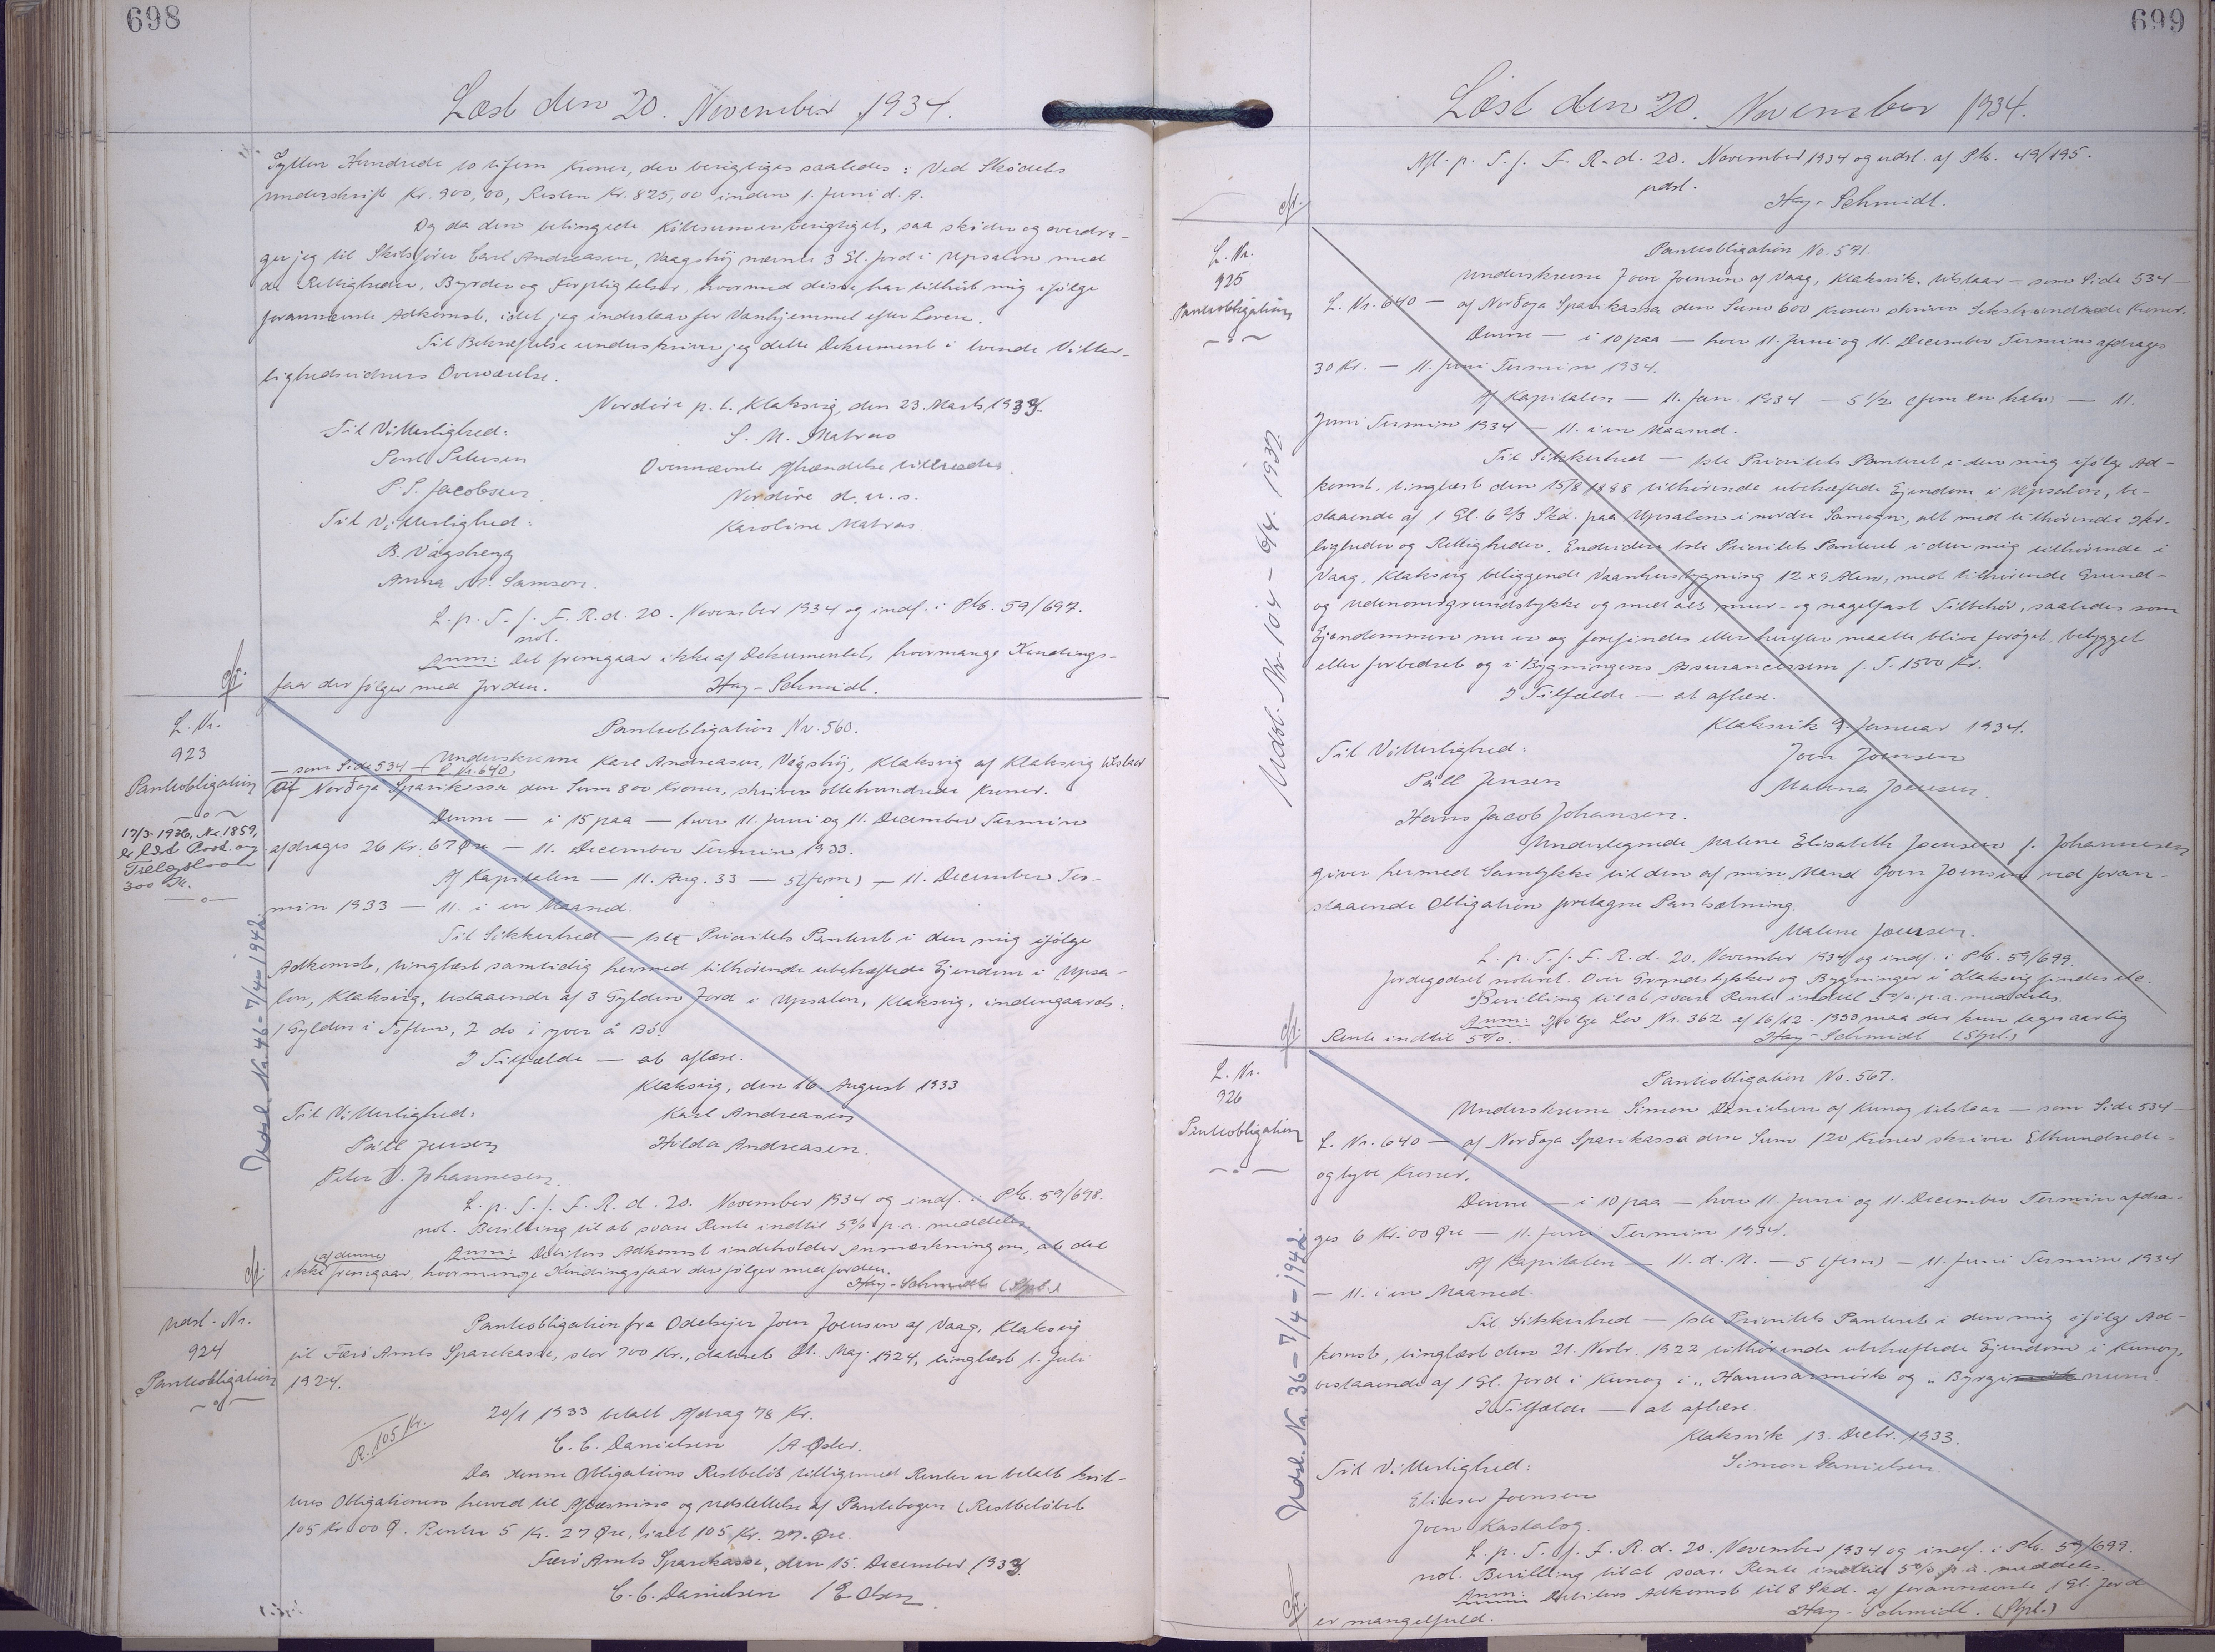 698
Læst den 20. November 1934.
Gylden Hundrede to tifem Kroner, der berigtiges saaledes: Ved Skødets
underskrift Kr. 900,00, Resten Kr. 825,00 inden 1. Juni d. A.
Og da den betingede Købesum er berigtiget, saa skøder og overdra-
ger jeg til Skibsfører Carl Andreasen, Vaagshøj nævnte 3 Gl. Jord i Upsalen med
de Rettigheder, Byrder og Forpligtelser, hvormed disse har tilhørt mig ifølge
forannævnte Adkomst, idet jeg indestaar for Vanhjemmel efter Loven.
Til Bekræftelse underskriver jeg dette Dokument i tvende Vitter-
lighedsvidners Overværelse.
Norddøre p. t. Klaksvig, den 23. Marts 1934.
Til Vitterlighed:
S. M. Matras
Poul Petersen
Ovennævnte Afhændelse tiltrædes.
P. S. Jacobsen.
Norddøre d. u. s.
Til Vitterlighed:
Karoline Matras.
B. Vágsberg
Anna M. Samson.
L. p. T. f. F. R. d. 20. November 1934 og indf. i Ptb. 59/697.
not.
Anm: Det fremgaar ikke af Dokumentet, hvormange Kendings-
faar der følger med Jorden.
Hay-Schmidt.
L. Nr.
923
Panteobligation
17/3 1936, Nr. 1859,
300 Kr.
Udsl. Nr. 46 - 7/4 - 1942.
Panteobligation Nr. 560.
Underskrevne Karl Andreasen, Vágshøj, Klaksvig af Klaksvig tilstaar
— som Side 534 — L. Nr. 640,
af Norðoya Sparikassa den Sum 800 Kroner, skriver ottehundrede Kroner.
Denne — i 15 paa — hver 11. Juni og 11. December Termin
afdrages 26 Kr. 67 Øre — 11. December Termin 1933.
Af Kapitalen — 11. Aug. 33 — 5 (fem) — 11. December Ter-
min 1933 — 11. i en Maaned.
Til Sikkerhed — 1ste Prioritets Panteret i den mig ifølge
Adkomst, tinglæst samtidig hermed tilhørende ubehæftede Ejendom i Upsa-
len, Klaksvig, bestaaende af 3 Gylden Jord i Upsalen, Klaksvig, indengaards:
1 Gylden i Toften, 2 do i yvir á Bø.
I Tilfælde — at aflæse.
Klaksvig, den 16. August 1933
Til Vitterlighed:
Karl Andreasen
Páll Jensen
Hilda Andreasen.
Peter D. Johannesen.
L. p. T. f. F. R. d. 20. November 1934 og indf. i Ptb. 59/698.
not. Bevilling til at svare Rente indtil 5% p. a. meddeles
Anm: Debitors Adkomst indeholder Anmærkning om, at det
(af denne)
ikke fremgaar, hvormange Kendingsfaar der følger med Jorden.
Hay-Schmidt (Stpl.)
Udsl. Nr.
924
Panteobligation
Panteobligation fra Odelsejer Joen Joensen af Vaag, Klaksvig
til Færø Amts Sparekasse, stor 700 Kr., dateret 21. Maj 1924, tinglæst 1. Juli
1924.
20/1 1933 betalt Afdrag 78 Kr.
C. C. Danielsen /A Øster.
R. 105 Kr.
Da denne Obligations Restbeløb tilligemed Renter er betalt kvit-
teres Obligationen herved til Aflæsning og Udslettelse af Pantebogen (Restbeløbet
105 Kr. 00 Ø. Renter 5 Kr. 27 Øre, ialt 105 Kr. 27. Øre.
Færø Amts Sparekasse, den 15. December 1933
C. C. Danielsen /E Olsen.
699
Læst den 20. November 1934.
Afl. p. T. f. F. R. d. 20. November 1934 og udsl. af Ptb. 49/195.
udsl.
Hay-Schmidt.
L. Nr.
925
Panteobligation
Udsl. Nr. 104 - 6/4. 1937.
Panteobligation No. 571.
Underskrevne Joen Joensen af Vaag, Klaksvik, tilstaar — som Side 534 —
L. Nr. 640 — af Norðoya Sparikassa den Sum 600 Kroner skriver Sekshundrede Kroner.
Denne — i 10 paa — hver 11. Juni og 11. December Termin afdrages
30 Kr. — 11. Juni Termin 1934.
Af Kapitalen — 11. Jan. 1934 — 5 1/2 (fem en halv) — 11.
Juni Termin 1934 — 11. i en Maaned.
Til Sikkerhed — 1ste Prioritets Panteret i den mig ifølge Ad-
komst, tinglæst den 15/8 1888 tilhørende ubehæftede Ejendom i Upsalen, be-
staaende af 1 Gl. 6 2/3 Skd. paa Upsalen i nordre Samegn, alt med tilhørende Her-
ligheder og Rettigheder. Endvidere 1ste Prioritets Panteret i den mig tilhørende i
Vaag, Klaksvig beliggende Vaanhusbygning 12 x 9 Alen, med tilhørende Grund-
og Udenomsgrundstykke og med alt mur- og nagelfast Tilbehør, saaledes som
Ejendommen nu er og forefindes eller herefter maatte blive forøget, bebygget
eller forbedret og i Bygningens Assurancesum f. T. 1500 Kr.
I Tilfælde — at aflæse.
Klaksvik 9. Januar 1934.
Til Vitterlighed:
Joen Joensen
Páll Jensen
Malena Joensen.
Hans Jacob Johansen.
Undertegnede Malene Elisabeth Joensen f. Johannesen
giver hermed Samtykke til den af min Mand Joen Joensen ved foran-
staaende Obligation foretagne Pantsætning.
Malene Joensen.
L. p. T. f. F. R. d. 20. November 1934 og indf. i Ptb. 59/699.
Jordegodset noteret. Over Grundstykker og Bygninger i Klaksvig findes ikke.
Bevilling til at svare Rente indtil 5% p. a. meddeles.
Anm: Ifølge Lov Nr. 362 af 16/12. 1933 maa der kun tages aarlig
Rente indtil 5%.
Hay-Schmidt (Stpl.)
L. Nr.
926
Panteobligation
Udsl. Nr. 36 - 7/4 - 1942.
Panteobligation No. 567.
Underskrevne Simon Danielsen af Kunoy tilstaar — som Side 534 —
L. Nr. 640 — af Norðoya Sparikassa den Sum 120 Kroner skriver Ethundrede-
ogtyve Kroner.
Denne — i 10 paa — hver 11. Juni og 11. December Termin afdra-
ges 6 Kr. 00 Øre — 11. Juni Termin 1934.
Af Kapitalen — 11. d. M. — 5 (fem) — 11. Juni Termin 1934
— 11. i en Maaned.
Til Sikkerhed — 1ste Prioritets Panteret i den mig ifølge Ad-
komst, tinglæst den 21. Novbr. 1922 tilhørende ubehæftede Ejendom i Kunoy,
bestaaende af 1 Gl. Jord i Kunoy i "Hanusarmørk og "Byrgi num
I Tilfælde — at aflæse.
Klaksvik 13. Decbr. 1933.
Til Vitterlighed:
Simon Danielsen.
Elieser Joensen
Joen Kastalag.
L. p. T. f. F. R. d. 20. November 1934 og indf. i Ptb. 59/699.
not. Bevilling til at svare Rente indtil 5% p. a. meddeles.
Anm: Debitors Adkomst til 8 Skd. af forannævnte 1 Gl. Jord
er mangelfuld.
Hay-Schmidt. (Stpl.)